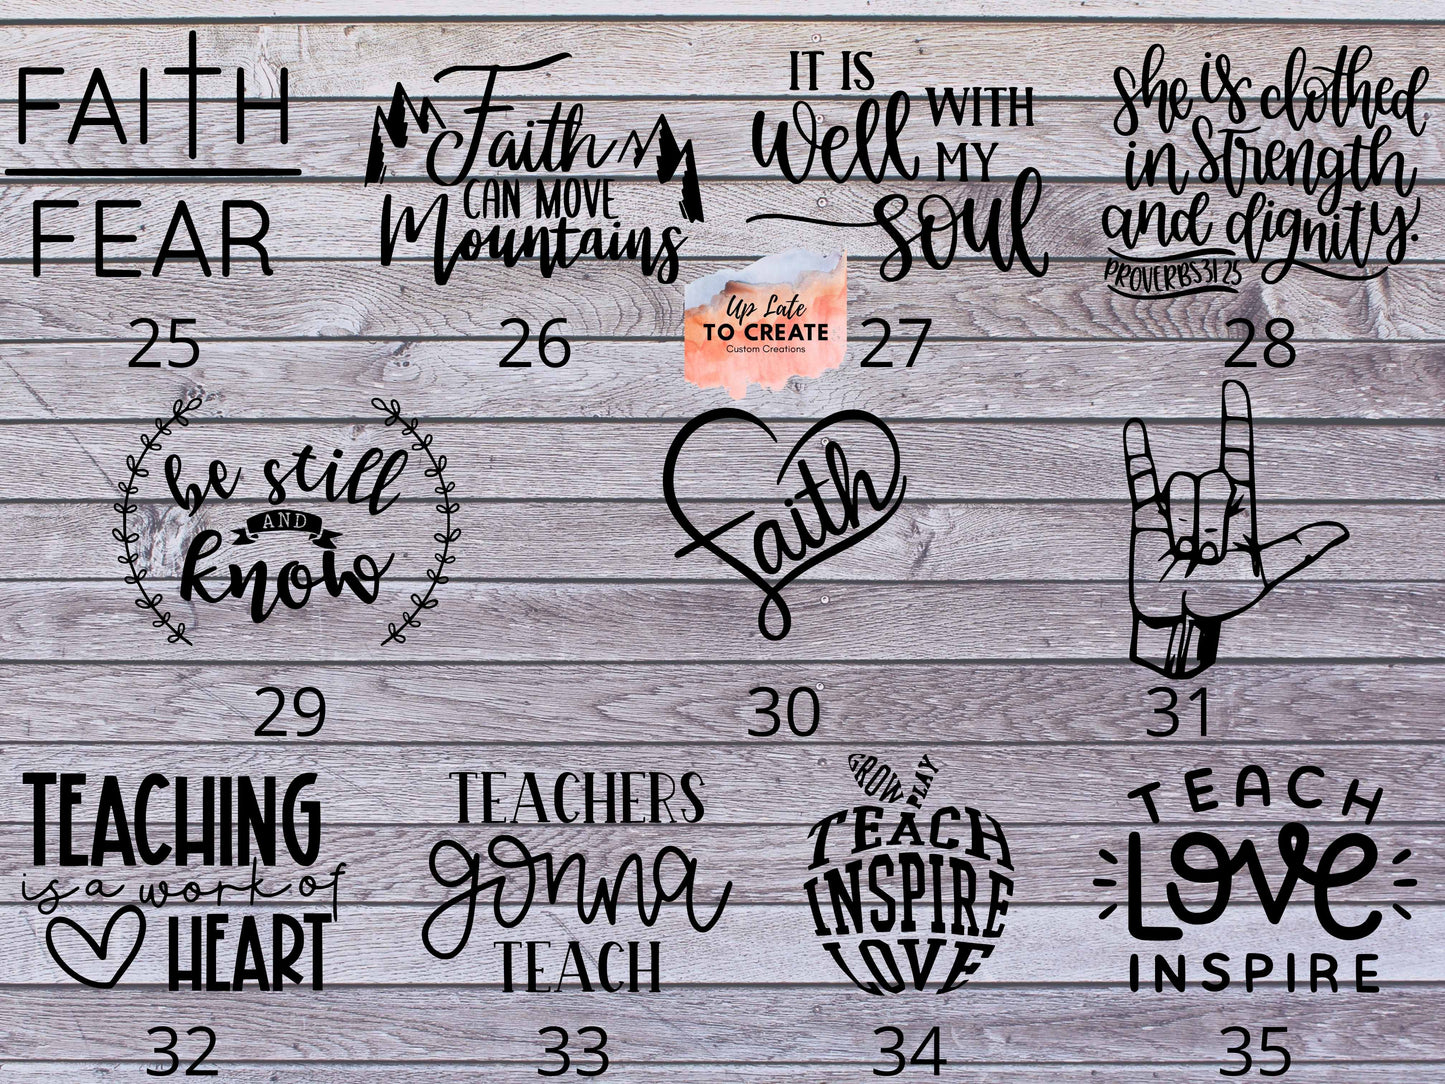 FAITH
FEAR
25
Faith
CAN MOVE
Mountains
26
IT IS
Well WITH
MY
Soul
27
she is clothed
in strength
and dignity.
PROVERBS 31 25
28
Up Late
TO CREATE
Custom Creations
be still
AND
know
29
Faith
30
31
TEACHING
is a work of
HEART
32
TEACHERS
gonna
TEACH
33
GROW PLAY
TEACH
INSPIRE
LOVE
34
TEACH
LOVE
INSPIRE
35